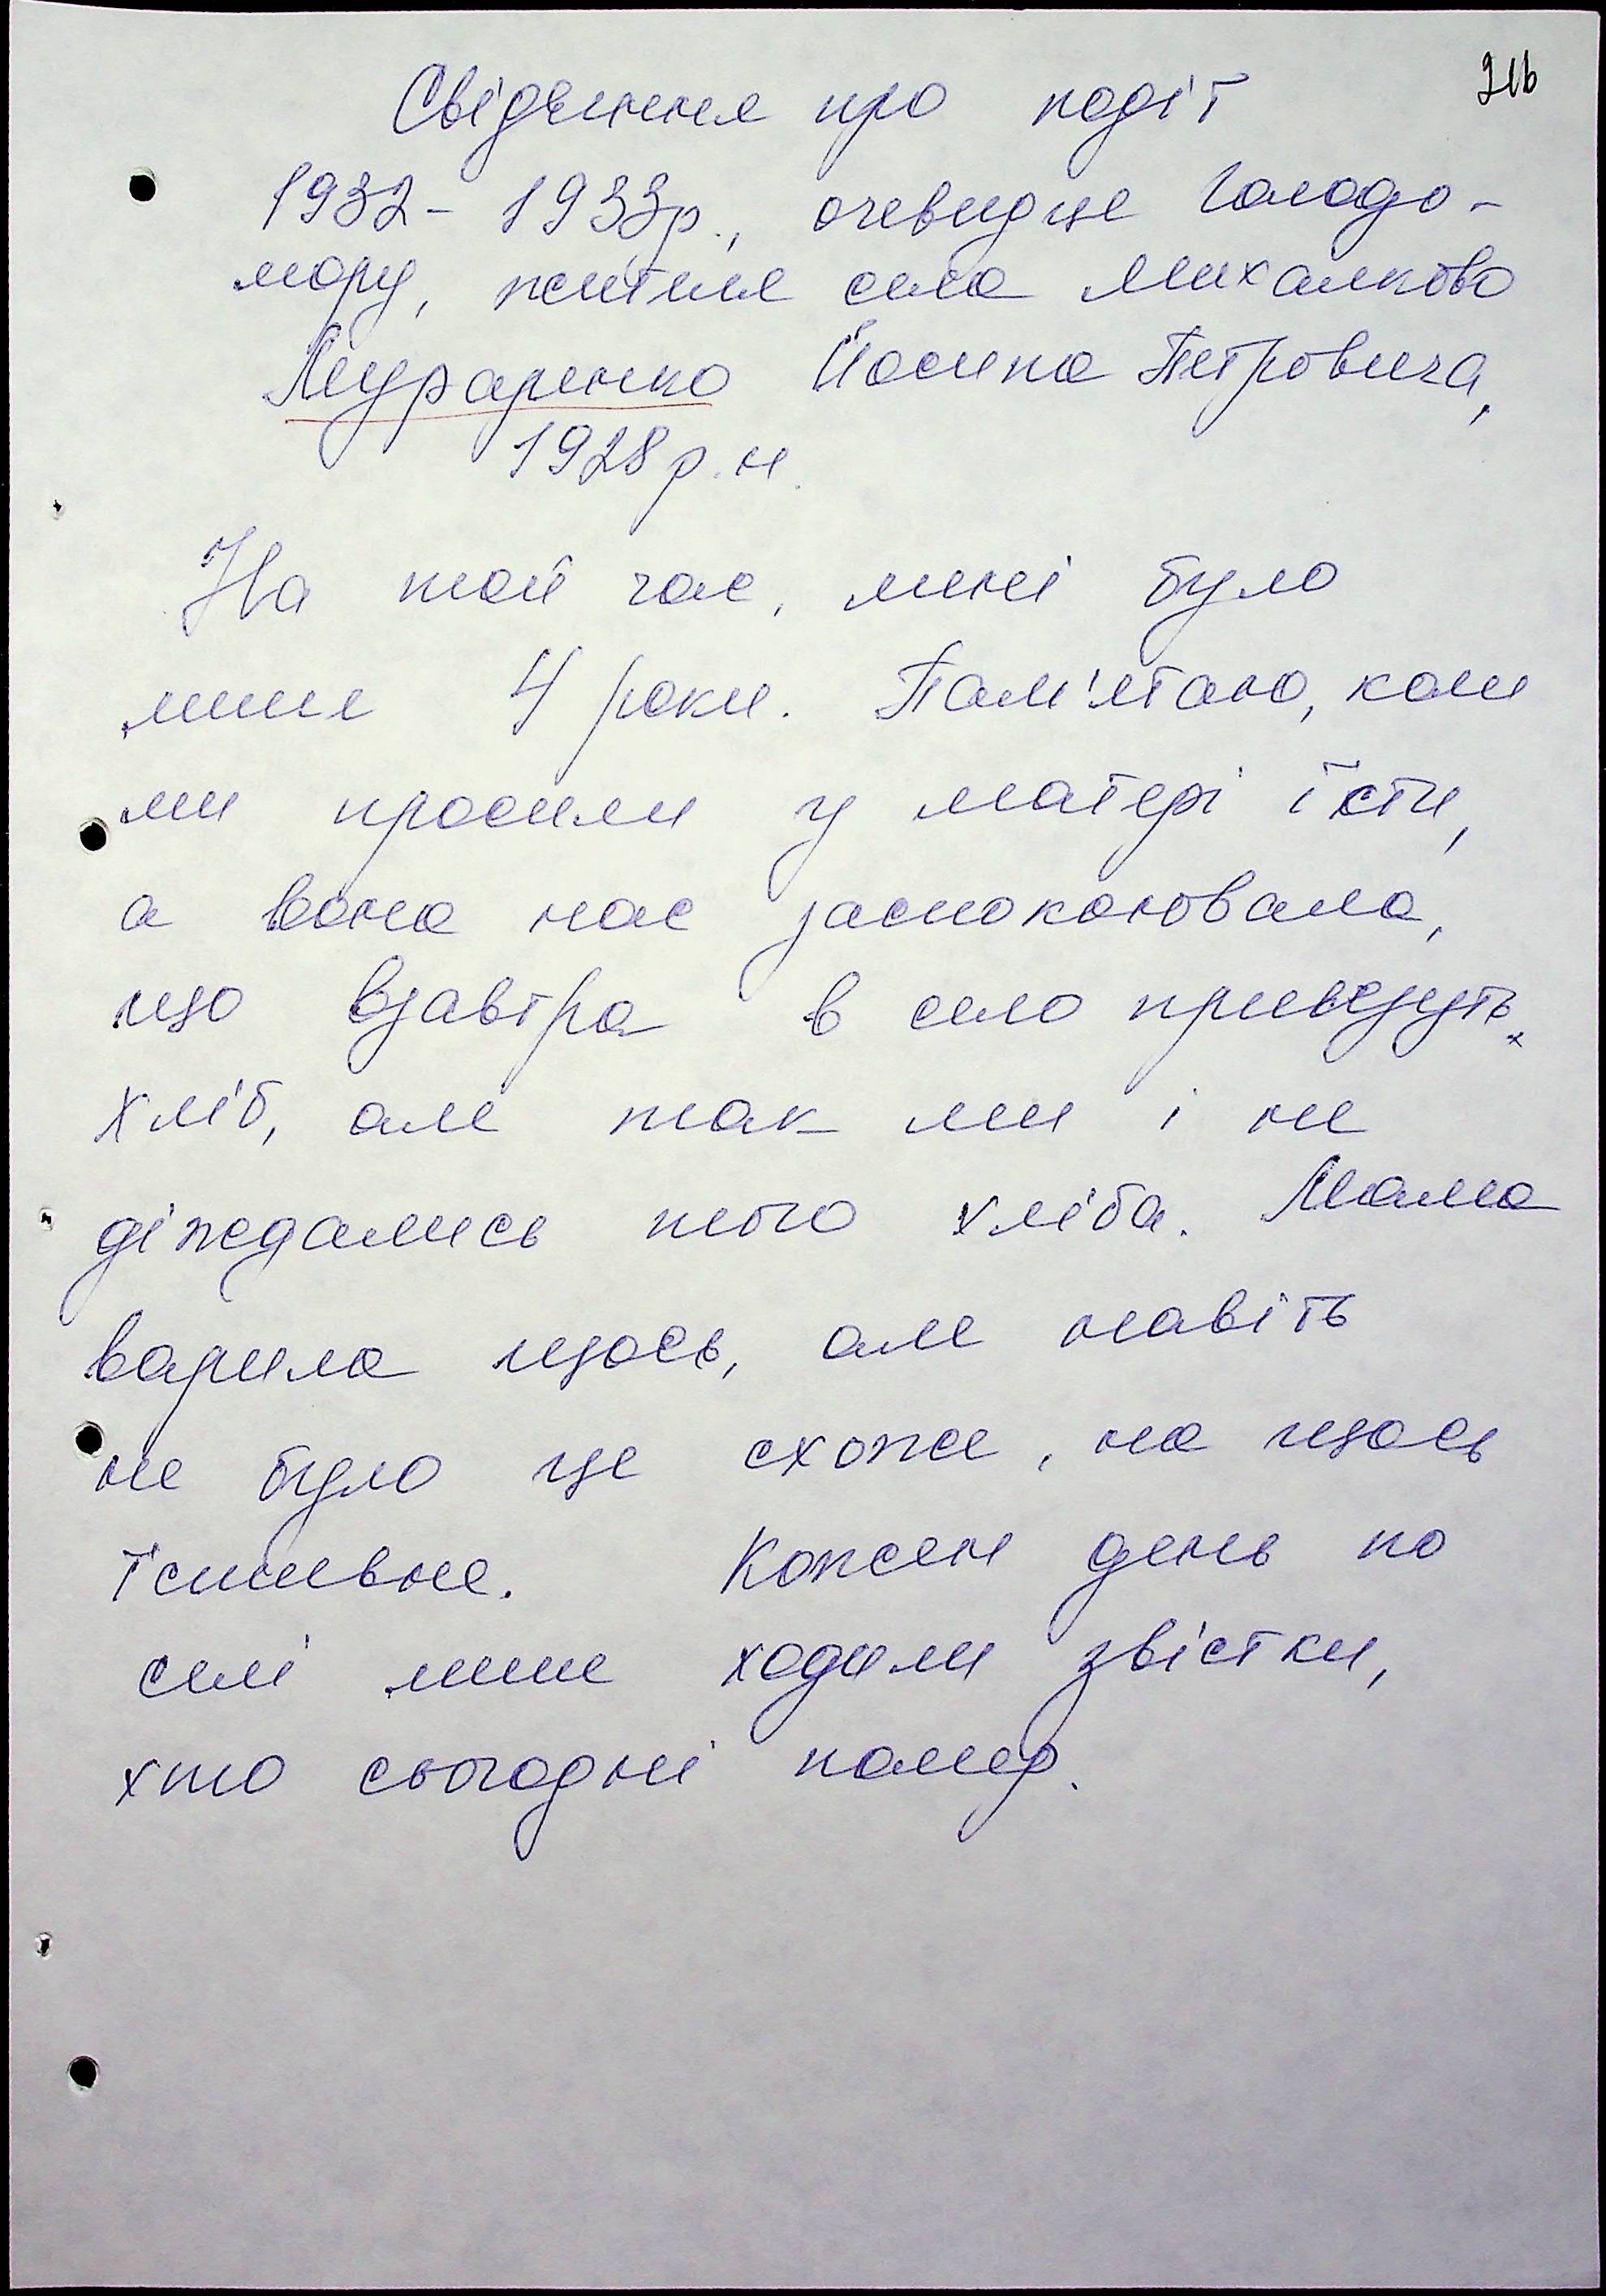 216
Свідчення про події
1932 - 1933р., очевидце Голодо-
мору, жителя села Михалково
Мураренко Йосипа Петровича,
1928 р. н.
На той час, мені було
лише 4 роки. Пам'ятаю, коли
ми просили у матері їсти,
а вона нас заспокоювала,
що взавтра в село привезуть
хліб, але так ми і не
діждались того хліба. Мама
варила щось, але навіть
не було це схоже, на щось
їстивне. Кожен день по
селі лише ходили звістки,
хто сьогодні помер.